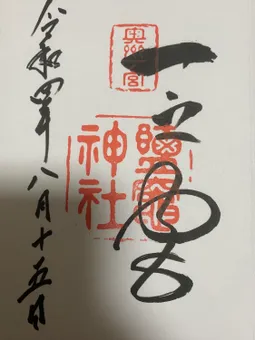 一之宮
鹽竈
神社
令和四年八月十五日